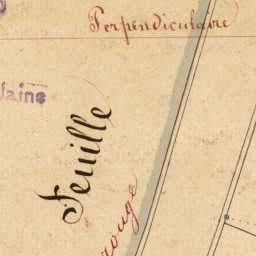 Perpendiculaire
Feuille
rouge